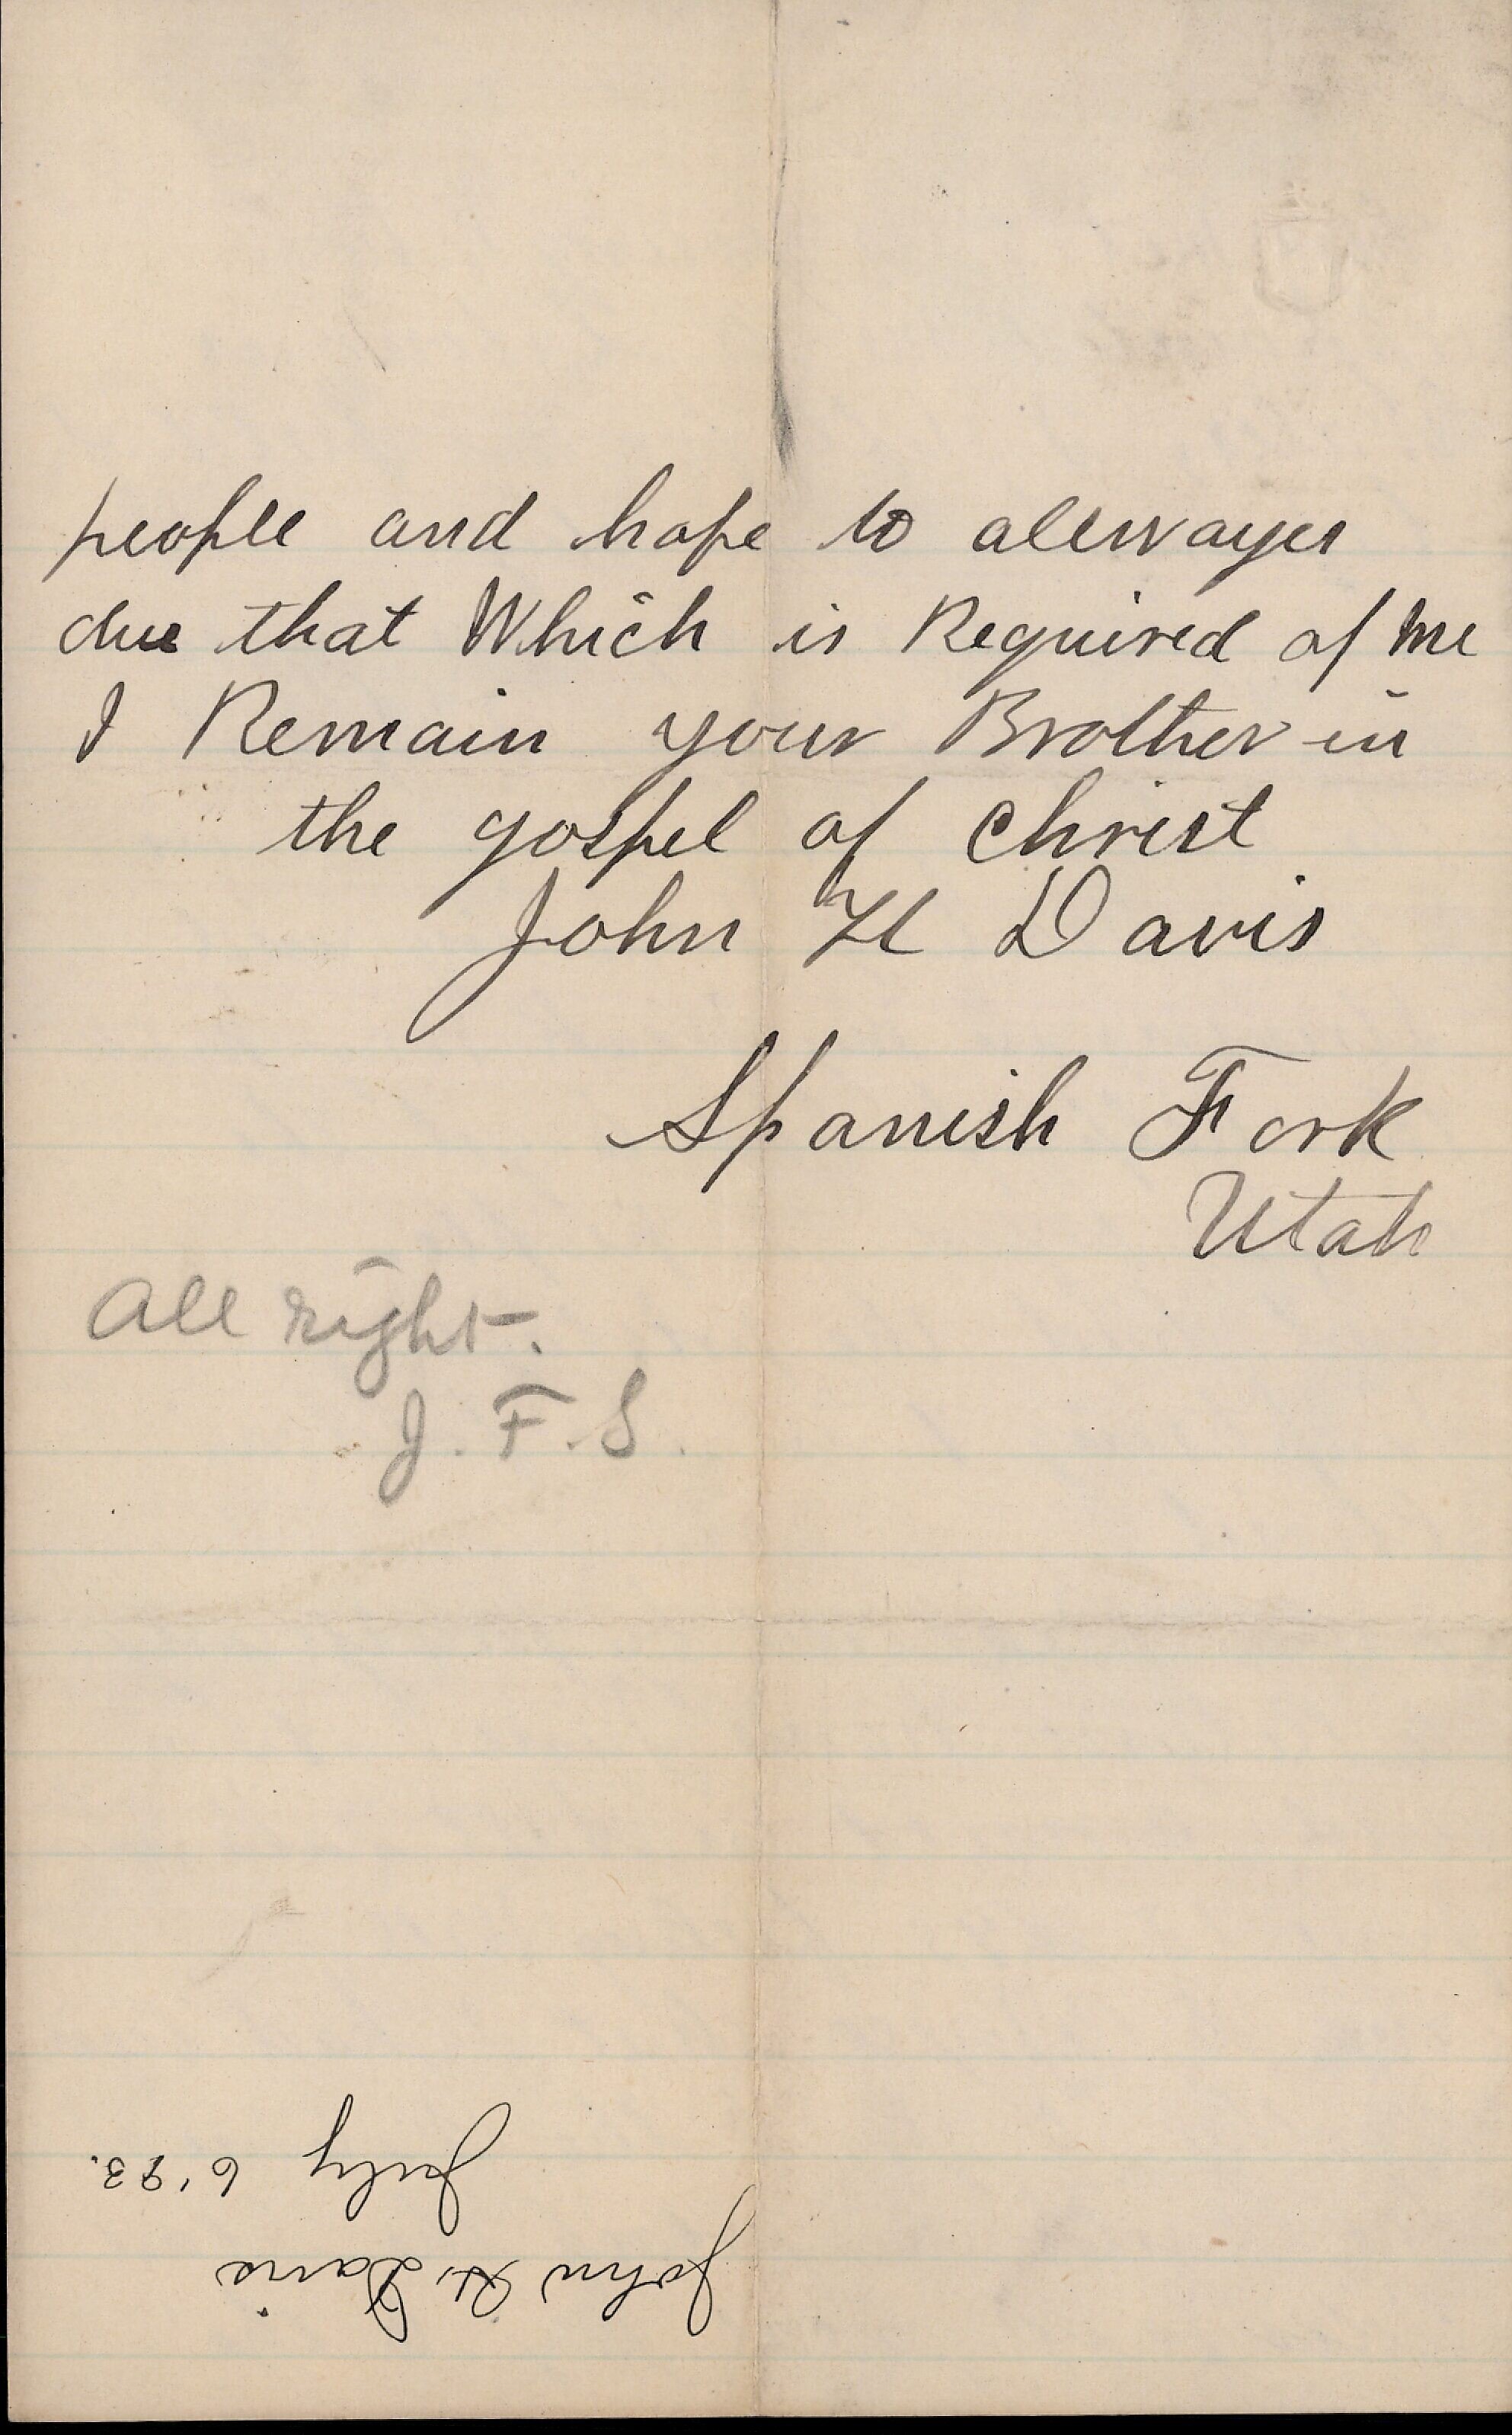 people and hope to allwayes
due that Which is Required of Me
I Remain your Brother in
the gospel of Christ
John H Davis
Spanish Fork
Utah
All right.
J. F. S.
John H. Davis
July 6 '93.